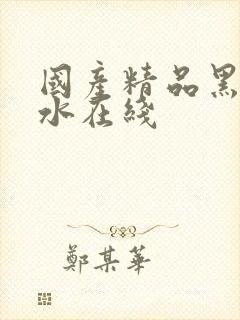 國產精品黑
水在綫
鄭某華